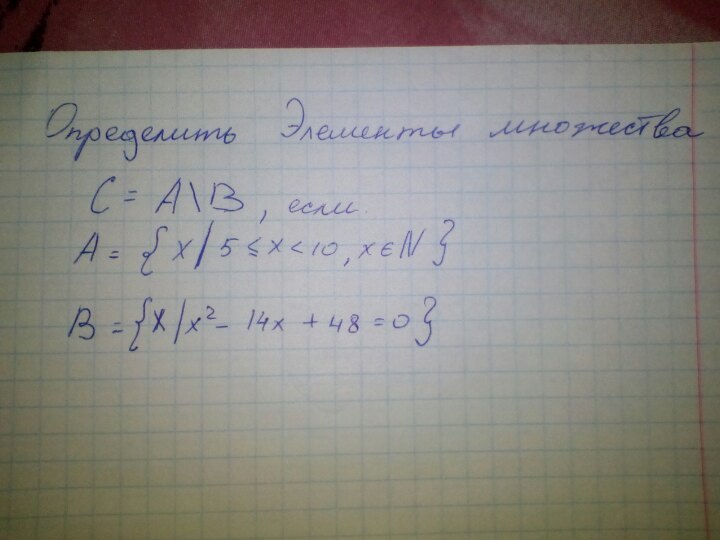 Определить Элементы множества
C = A\B, если
A = {x/5 ≤ x < 10, x ∈ N}
B = {x/x² - 14x + 48 = 0}